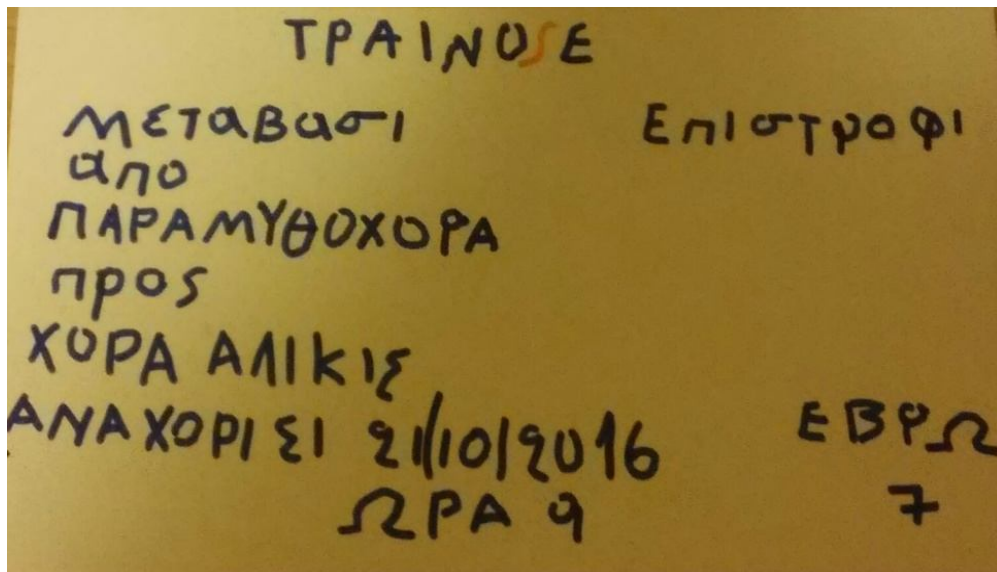 ΤΡΑΙΝΟSΕ
Μεταβασι Επιστροφι
απο
ΠΑΡΑΜΥΘΟΧΟΡΑ
προς
ΧΟΡΑ ΑΛΙΚΙΣ
ΑΝΑΧΟΡΙΣΙ 21/10/2016 ΕΒΡΩ
ΩΡΑ 9 7